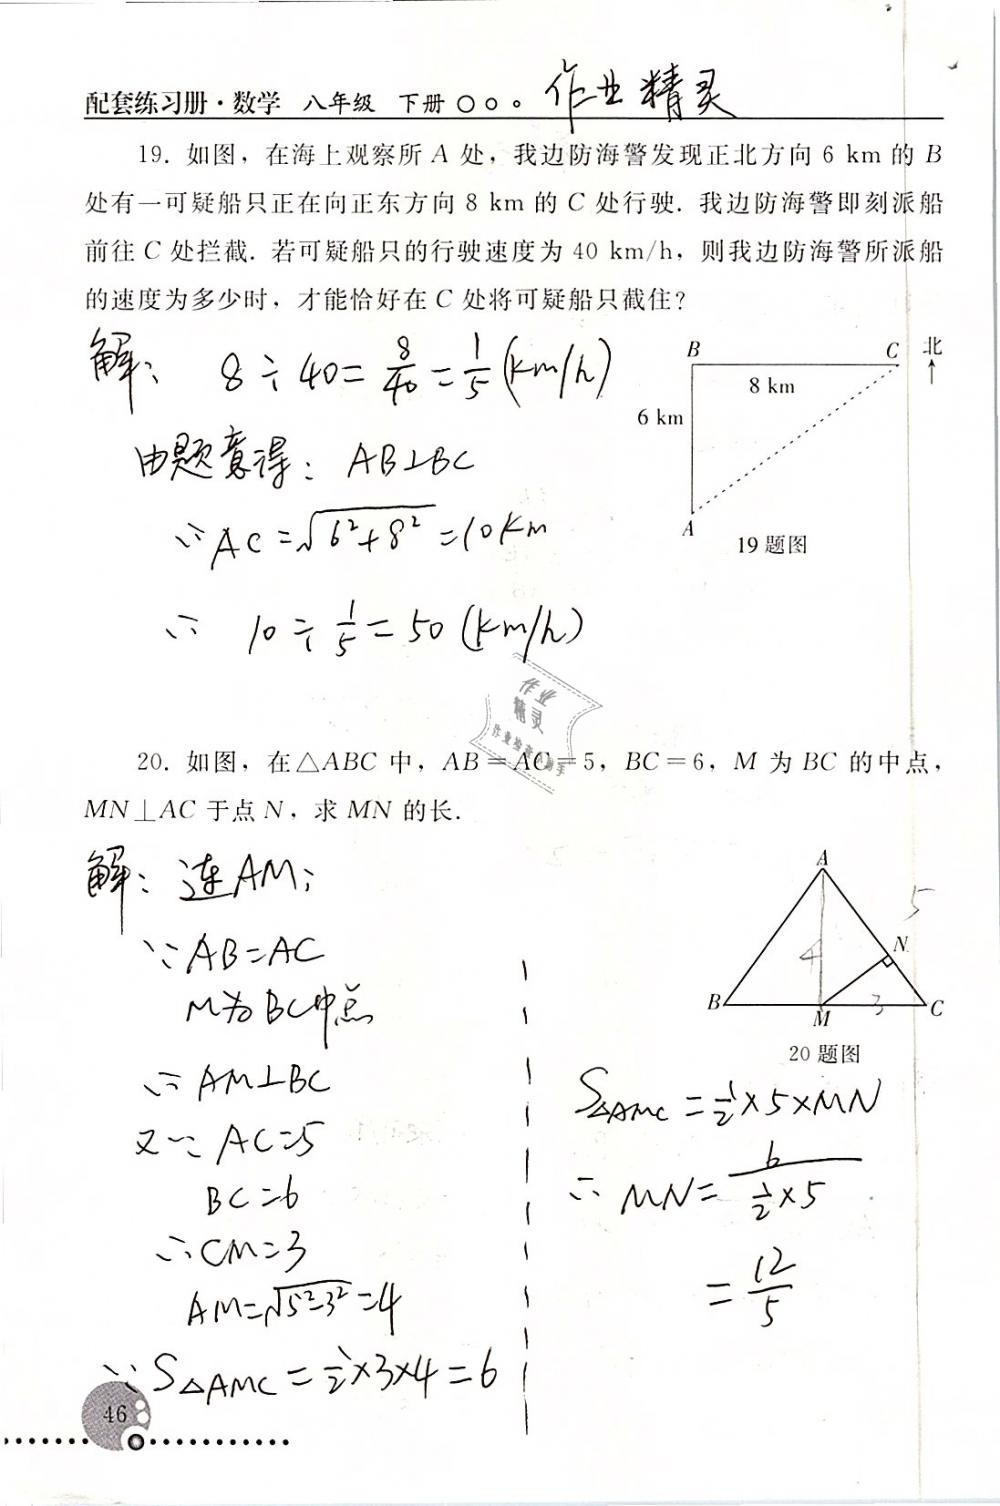 配套练习册·数学 八年级 下册 作业精灵
19. 如图，在海上观察所 A 处，我边防海警发现正北方向 6 km 的 B
处有一可疑船只正在向正东方向 8 km 的 C 处行驶. 我边防海警即刻派船
前往 C 处拦截. 若可疑船只的行驶速度为 40 km/h，则我边防海警所派船
的速度为多少时，才能恰好在 C 处将可疑船只截住?
解: 8÷40=8/40=1/5(km/h)
由题意得: AB⊥BC
∴AC=√(6²+8²)=10km
∴ 10÷1/5=50(km/h)
B
C
北
8 km
6 km
A
19 题图
作业
精灵
20. 如图，在△ABC 中，AB=AC=5，BC=6，M 为 BC 的中点，
MN⊥AC 于点 N，求 MN 的长.
解: 连AM;
∵AB=AC
M为BC中点
∴AM⊥BC
又∵AC=5
BC=6
∴CM=3
AM=√(5²-3²)=4
∵S△AMC=1/2×3×4=6
A
5
N
4
B
M
3
C
20 题图
S△AMC=1/2×5×MN
∴MN=6/(1/2×5)
=12/5
46